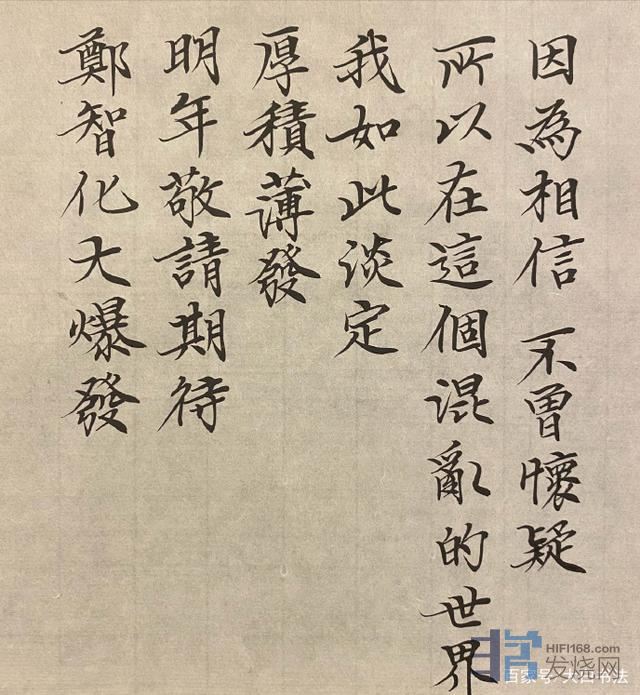 因為相信 不曾懷疑
所以在這個混亂的世界
我如此淡定
厚積薄發
明年敬請期待
鄭智化大爆發
HIFI168.com
发烧网
百家号
书法